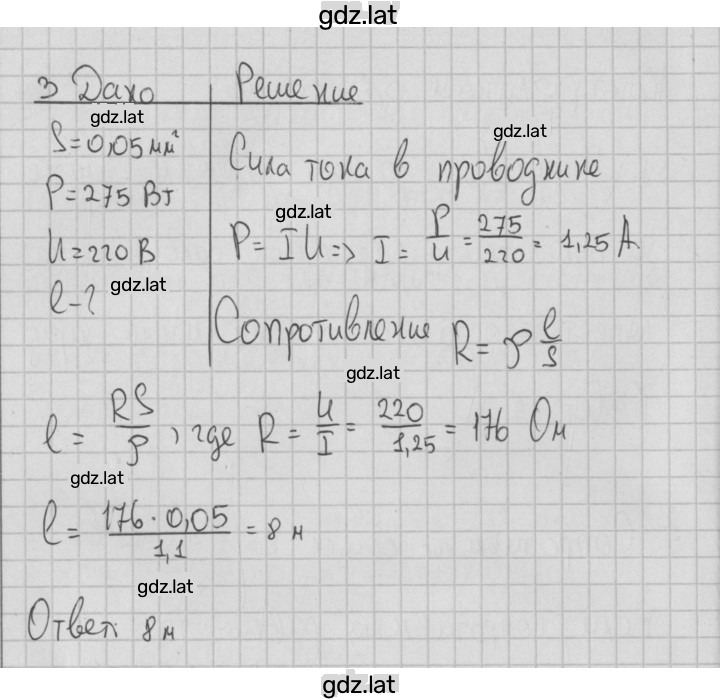 gdz.lat
3 Дано
Решение
gdz.lat
S=0,05 мм²
gdz.lat
Сила тока в проводнике
P=275 Вт
gdz.lat
P= IU => I = P/U = 275/220 = 1,25 А
U=220 В
gdz.lat
l-?
Сопротивление R= ρ l/s
gdz.lat
l = RS/ρ, где R = U/I = 220/1,25 = 176 Ом
gdz.lat
l = 176·0,05/1,1 = 8 м
gdz.lat
Ответ: 8 м
gdz.lat